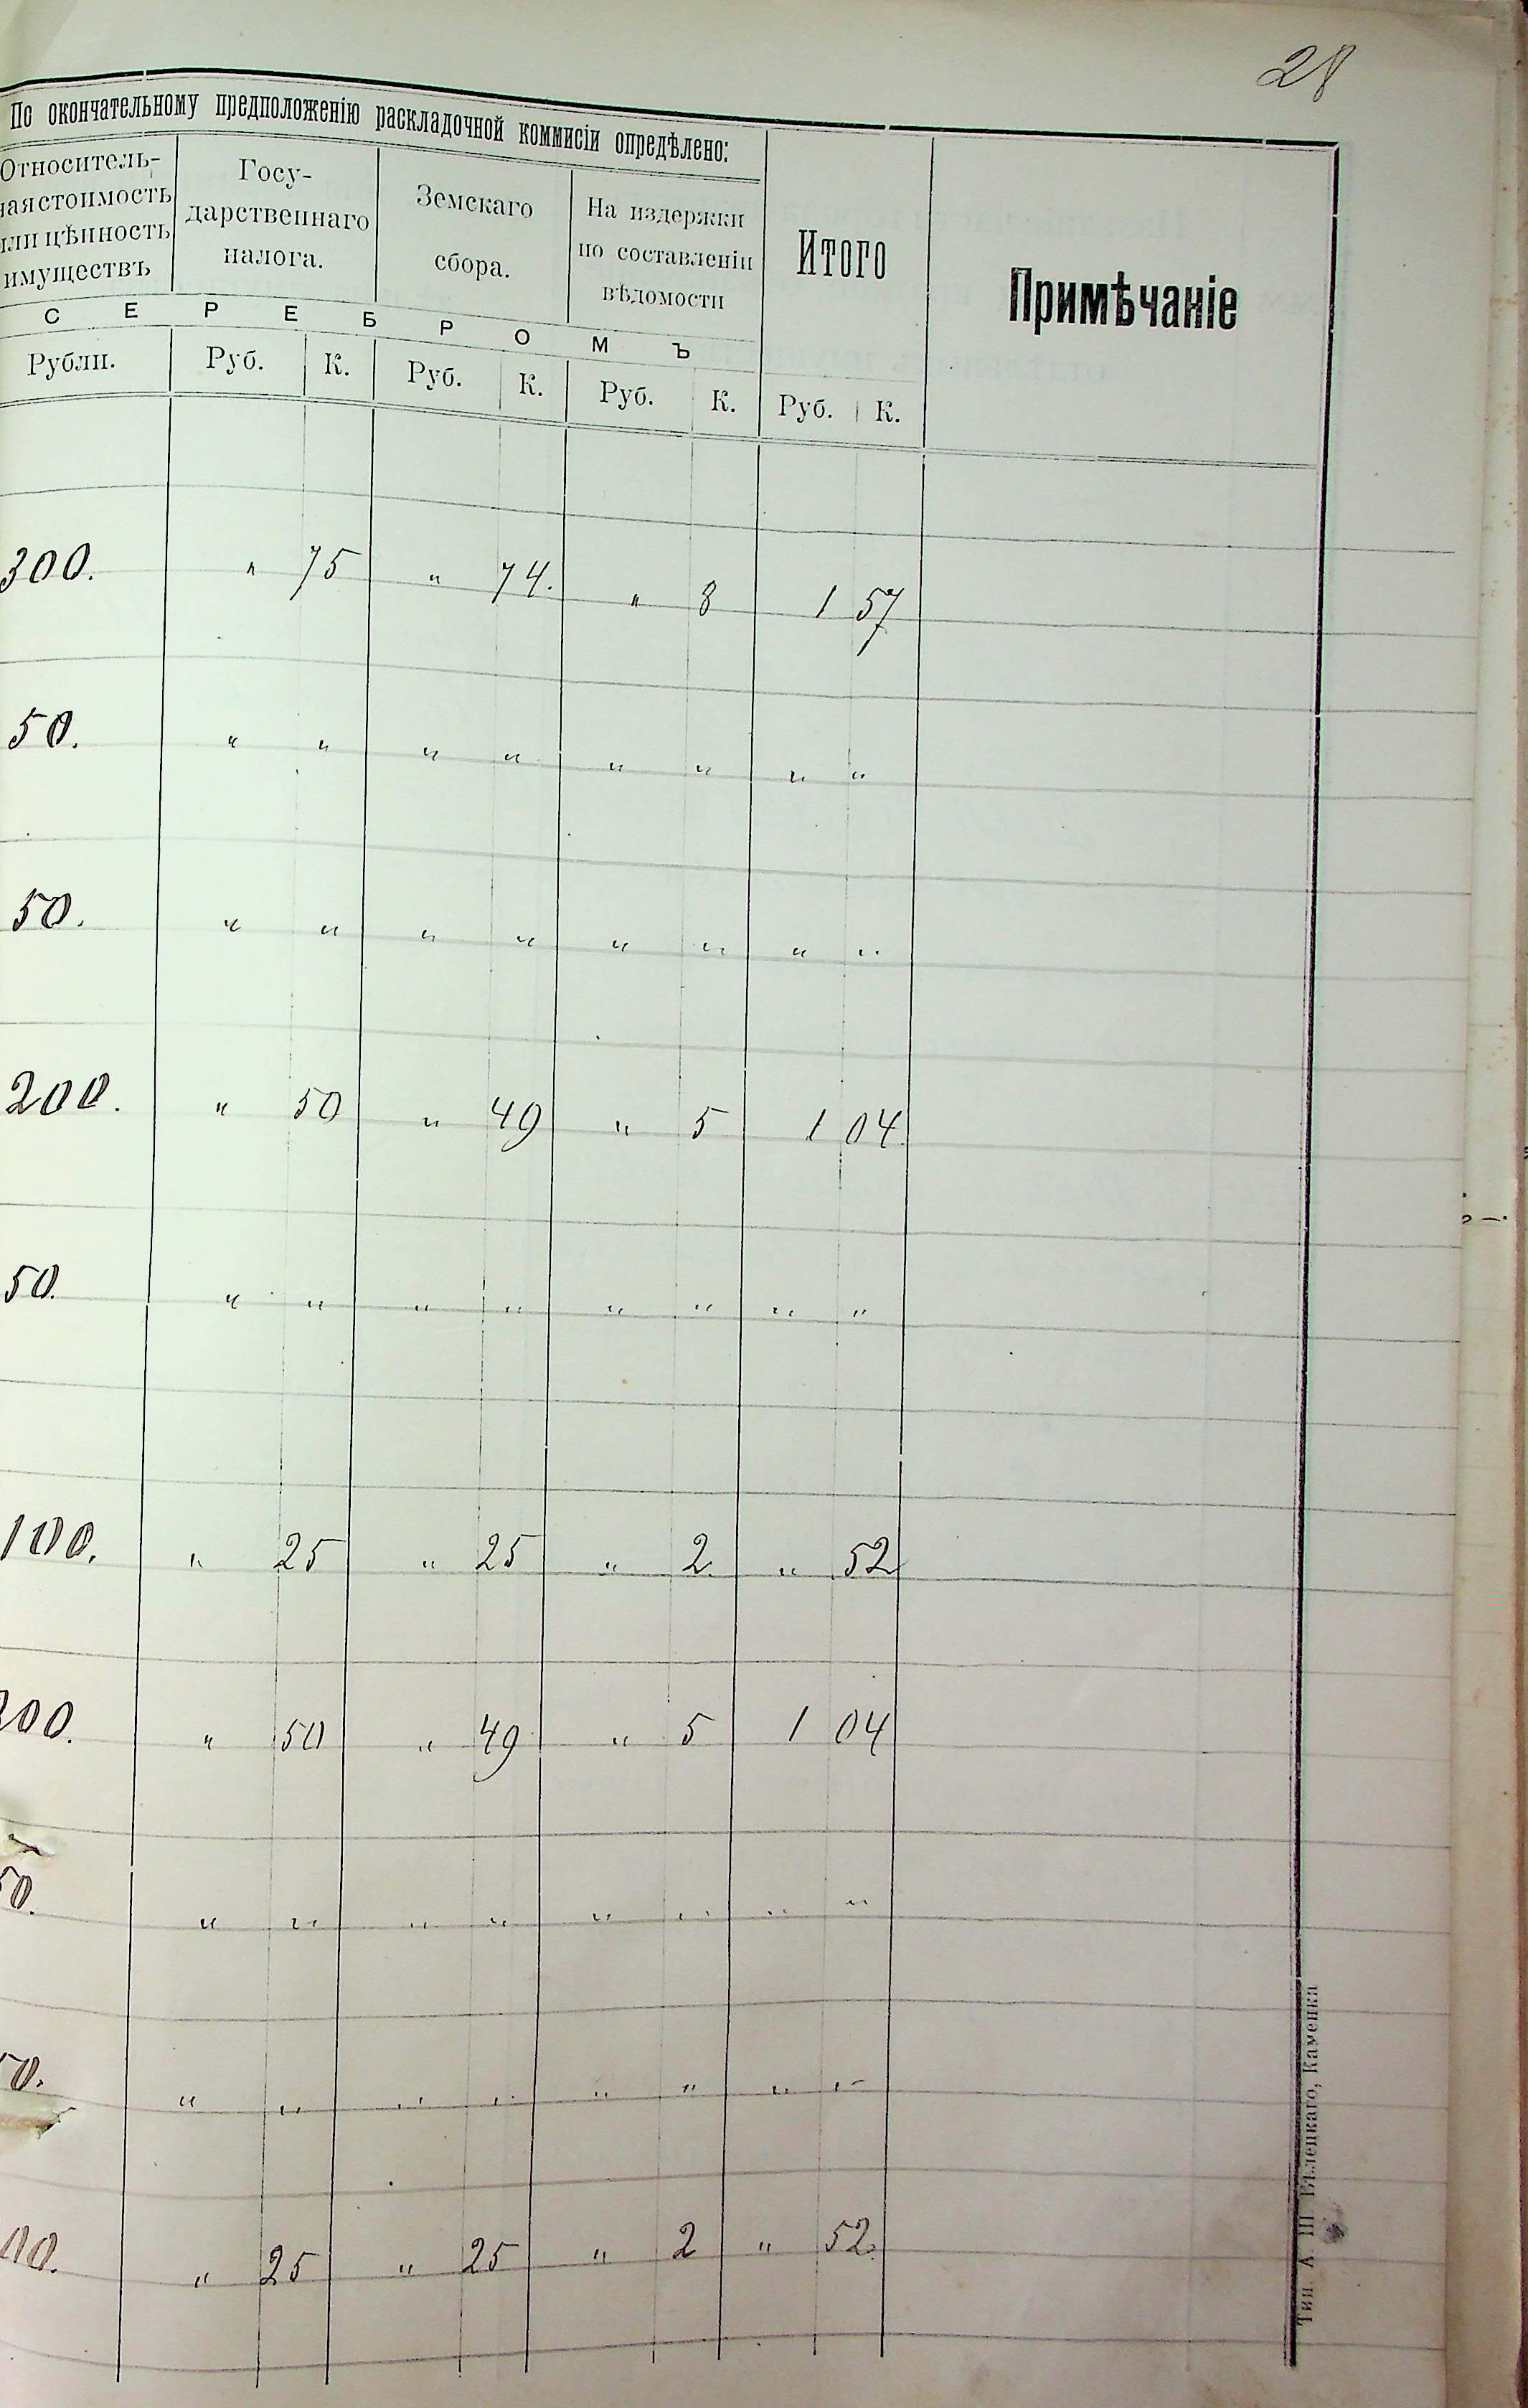 28
По окончательному предположенію раскладочной коммисіи опредѣлено:
Относитель-
ная стоимость
или цѣнность
имуществъ
Госу-
дарственнаго
налога.
Земскаго
сбора.
На издержки
по составленіи
вѣдомости
Итого
Примѣчаніе
СЕРЕБРОМЪ
Рубли. Руб. К. Руб. К. Руб. К. Руб. К.
300. " 75 " 74. " 8 1 57
50. " " " " " " " "
50. " " " " " " " "
200. " 50 " 49 " 5 1 04
50. " " " " " " " "
100. " 25 " 25 " 2. " 52
200. " 50 " 49 " 5 1 04
50. " " " " " " " "
50. " " " " " " " "
00. " 25 " 25 " 2 " 52.
Тип. А. Ш. Бѣлецкаго, Каменка